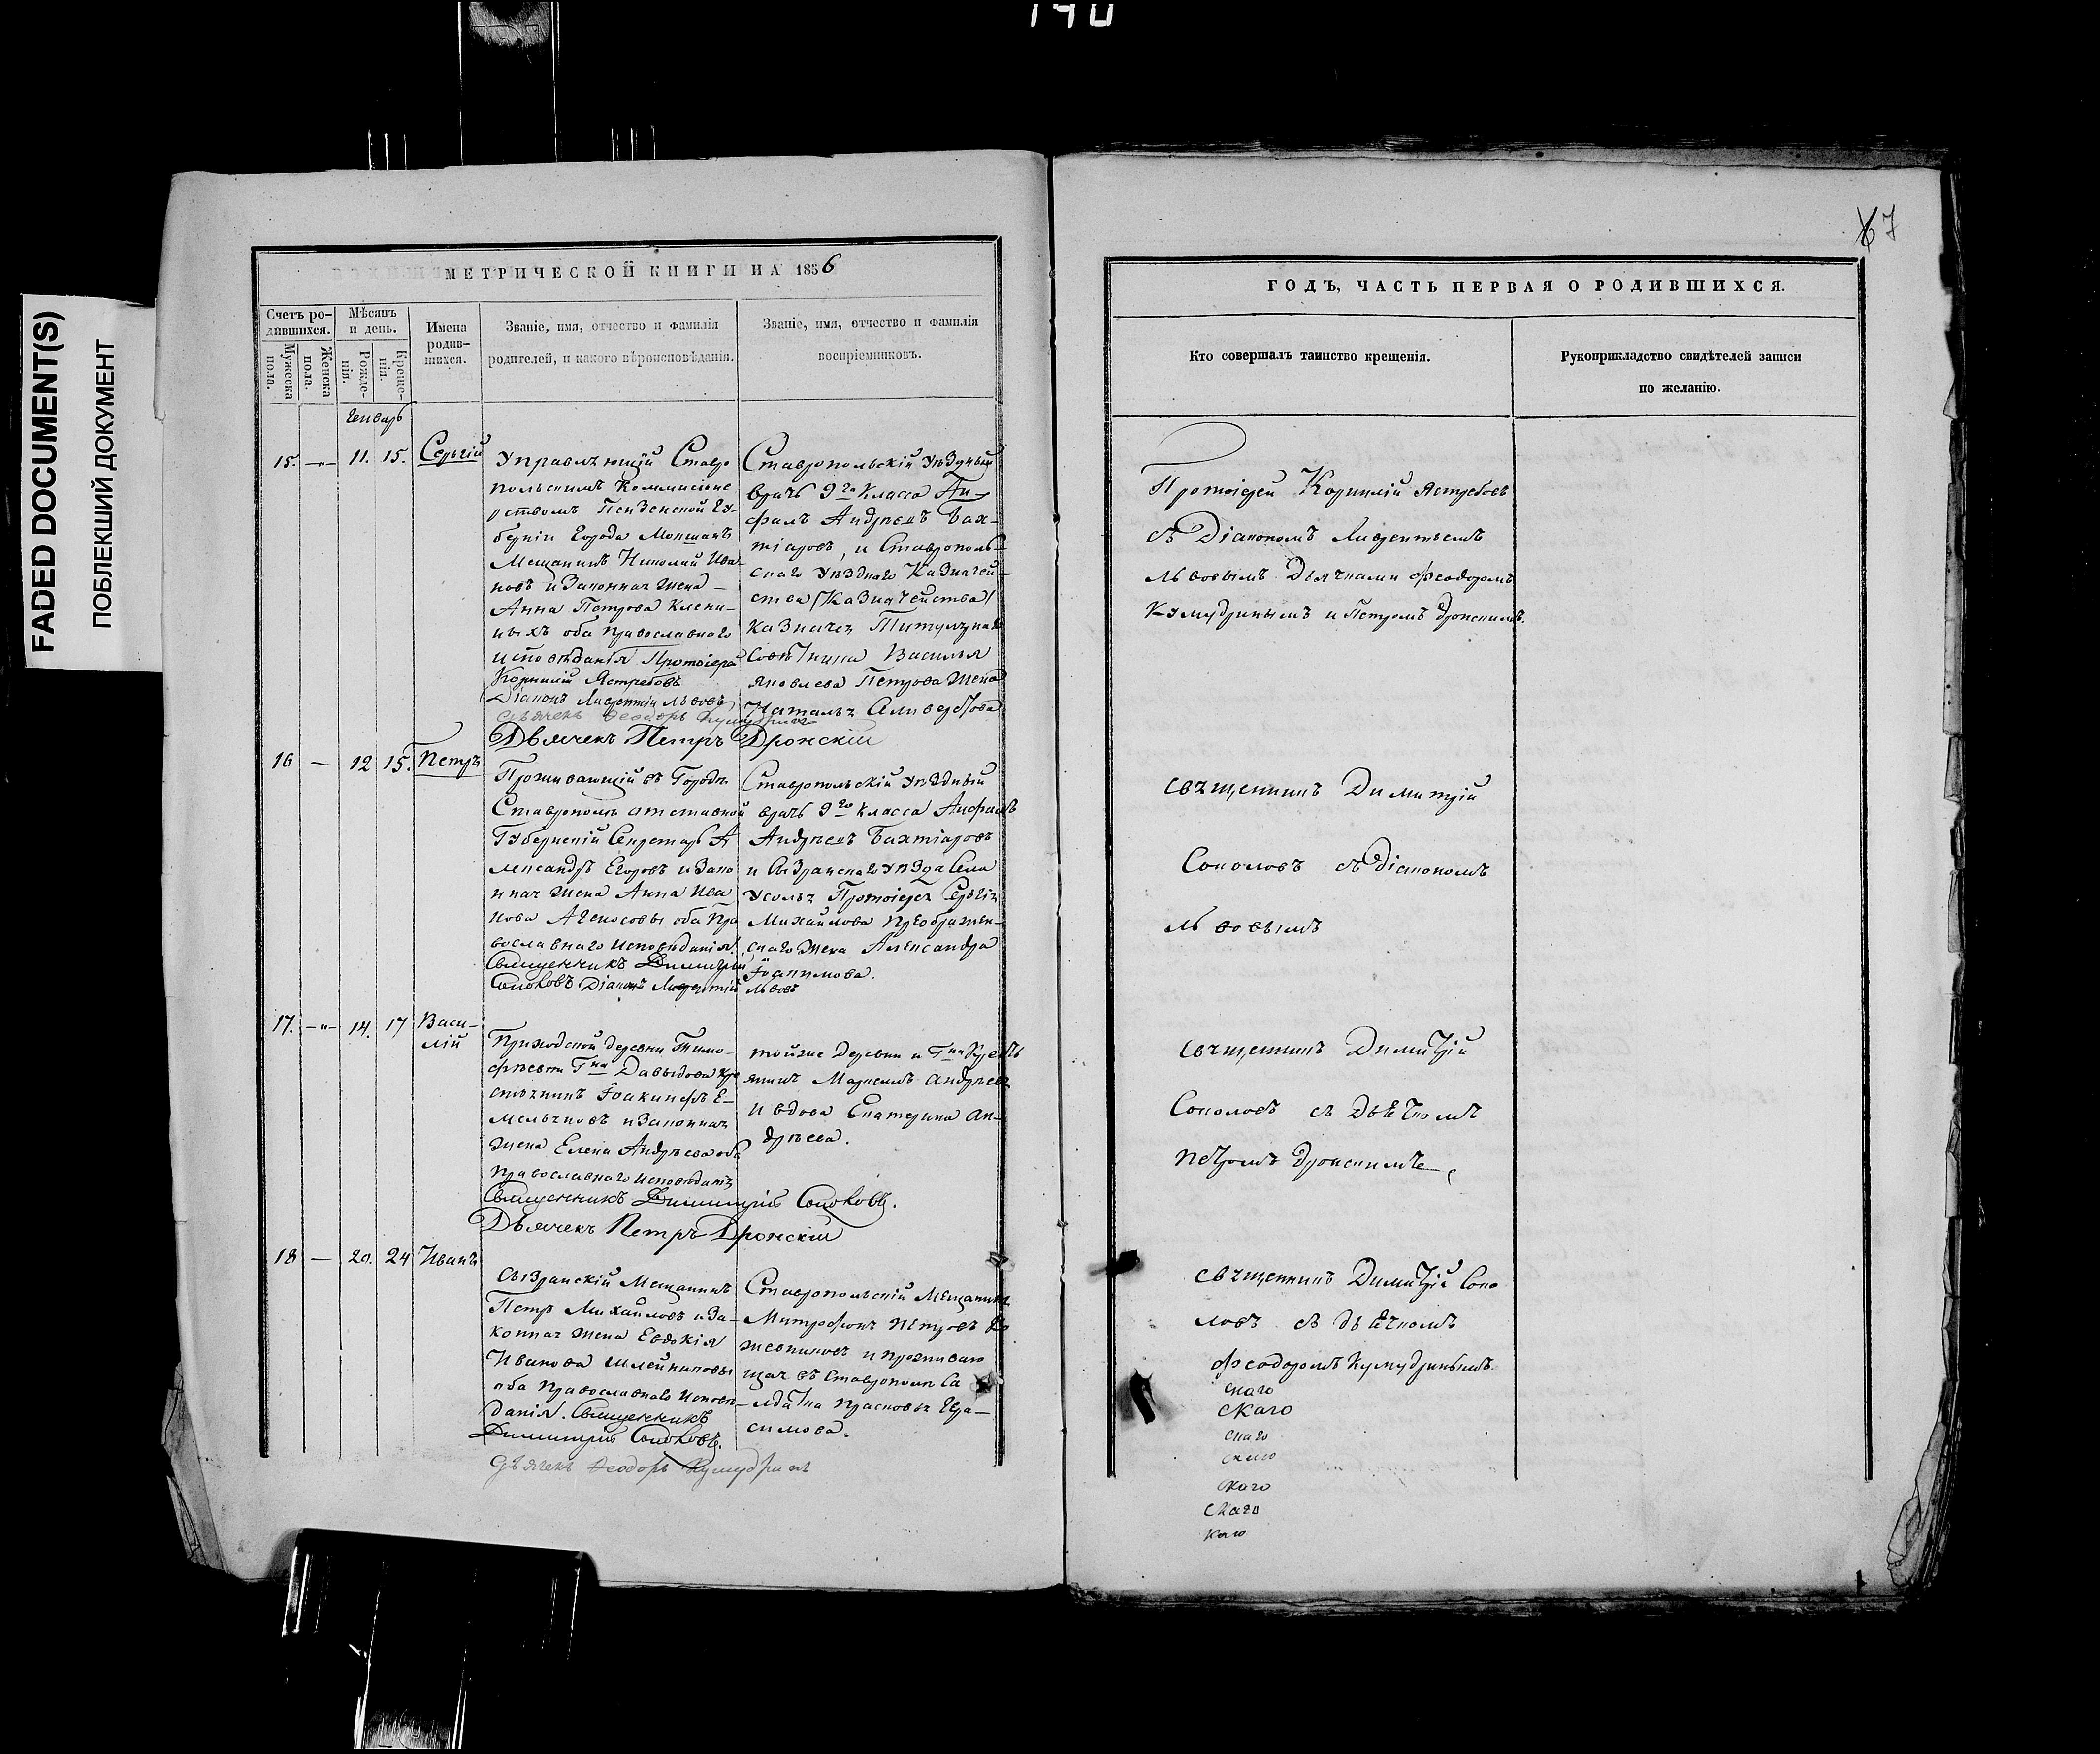 140
FADED DOCUMENT(S)
ПОБЛЕКШИЙ ДОКУМЕНТ
МЕТРИЧЕСКОЙ КНИГИ НА 1856
Счетъ родившихся.
Мужеска пола.
Женска пола.
Мѣсяцъ и день.
Рожденія.
Крещенія.
Имена родившихся.
Званіе, имя, отчество и фамилія
родителей, и какого вѣроисповѣданія.
Званіе, имя, отчество и фамилія
воспріемниковъ.
Генварь
15. —"— 11. 15. Сергій
Управляющій Ставро
польскимъ Коммисіоне
рствомъ Пензенской Гу-
берніи Города Мокшанъ
Мещанинъ Николай Ива
новъ и Законная жена —
Анна Петрова
ныхъ оба православнаго
исповѣданія Протоіерей
Корнилій Ястребовъ
Діаконъ Лаврентій Львовъ
Дьячекъ Феодоръ Кумудринъ
Дьячекъ Петръ Дронскій
Ставропольскій Уѣздный
врачъ 9го Класса Ан-
фимъ Андреевъ Бах-
тіаровъ, и Ставрополь-
скаго Уѣзднаго Казначей-
ства (Казначейства)
Казначея Титулярнаго
Совѣтника Василья
Яковлева Петрова жена
Наталья
16 — 12 15. Петръ
Проживающій въ Городѣ
Ставрополѣ отставной
Губернскій Секретарь А
лександръ Егоровъ и Зако
нная жена Анна Ива
нова оба Пра
вославнаго Исповѣданія.
Священникъ Димитрій
Соколовъ Діаконъ Лаврентій Львовъ
Ставропольскій Уѣздный
врачъ 9го Класса Анфимъ
Андреевъ Бахтіаровъ
и Сызранскаго Уѣзда Села
Усолья Протоіерея Сергія
Михайлова Преображен-
скаго жена Александра
Іоакимова.
17. —"— 14. 17 Васи-
лій
Приходской деревни Тимо-
фѣевки Гна Давыдова кре
стьянинъ Іоакинфъ Е-
мельяновъ и Законная
жена Елена Андреева оба
православнаго исповѣданія
Священникъ Димитрій Соколовъ.
Дьячекъ Петръ Дронскій
тойже Деревни и Гна Крестъ
янинъ Андреевъ
и вдова Екатерина Ан-
дреева.
18 — 20. 24 Иванъ
Сызранскій Мещанинъ
Петръ Михайловъ и За-
конная жена Евдокія
Иванова Шлейниковы
оба Православнаго Исповѣ-
данія. Священникъ
Димитрій Соколовъ.
Дьячекъ Феодоръ Кумудринъ
Ставропольскій Мещанинъ
Митрофанъ Петровъ Ко
жевниковъ и проживаю
щая въ Ставрополѣ Са
лдатка Прасковья Гера-
симова.
67
ГОДЪ, ЧАСТЬ ПЕРВАЯ О РОДИВШИХСЯ.
Кто совершалъ таинство крещенія.
Рукоприкладство свидѣтелей записи
по желанію.
Протоіерей Корнилій Ястребовъ
съ Діакономъ Лаврентьемъ
Львовымъ Дьячками Феодоромъ
Кумудринымъ и Петромъ Дронскимъ.
Священникъ Димитрій
Соколовъ съ Діакономъ
Львовымъ
Священникъ Димитрій
Соколовъ съ Дьячкомъ
Петромъ Дронскимъ
Священникъ Димитрій Соко
ловъ съ дьячкомъ
Феодоромъ Кумудринымъ.
скаго
скаго
скаго
скаго
скаго
скаго
каго